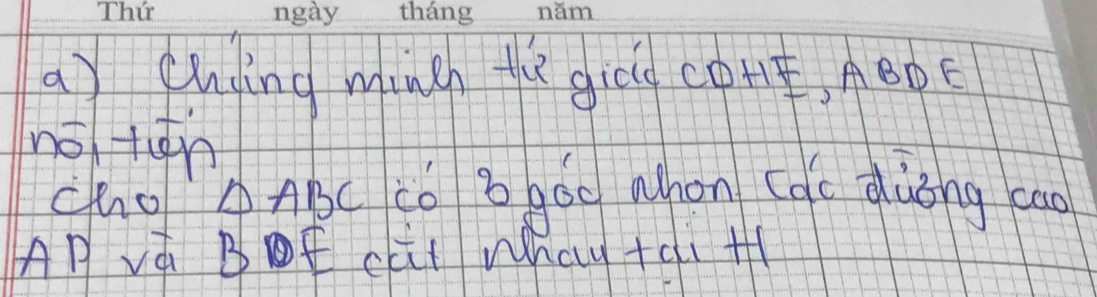 Thứ ngày tháng năm
a) Chứng minh tứ giác CDHE, ABDE
nội tiến
Cho Δ ABC có 3 góc nhọn các đường cao
AD và BE cắt nhau tại H